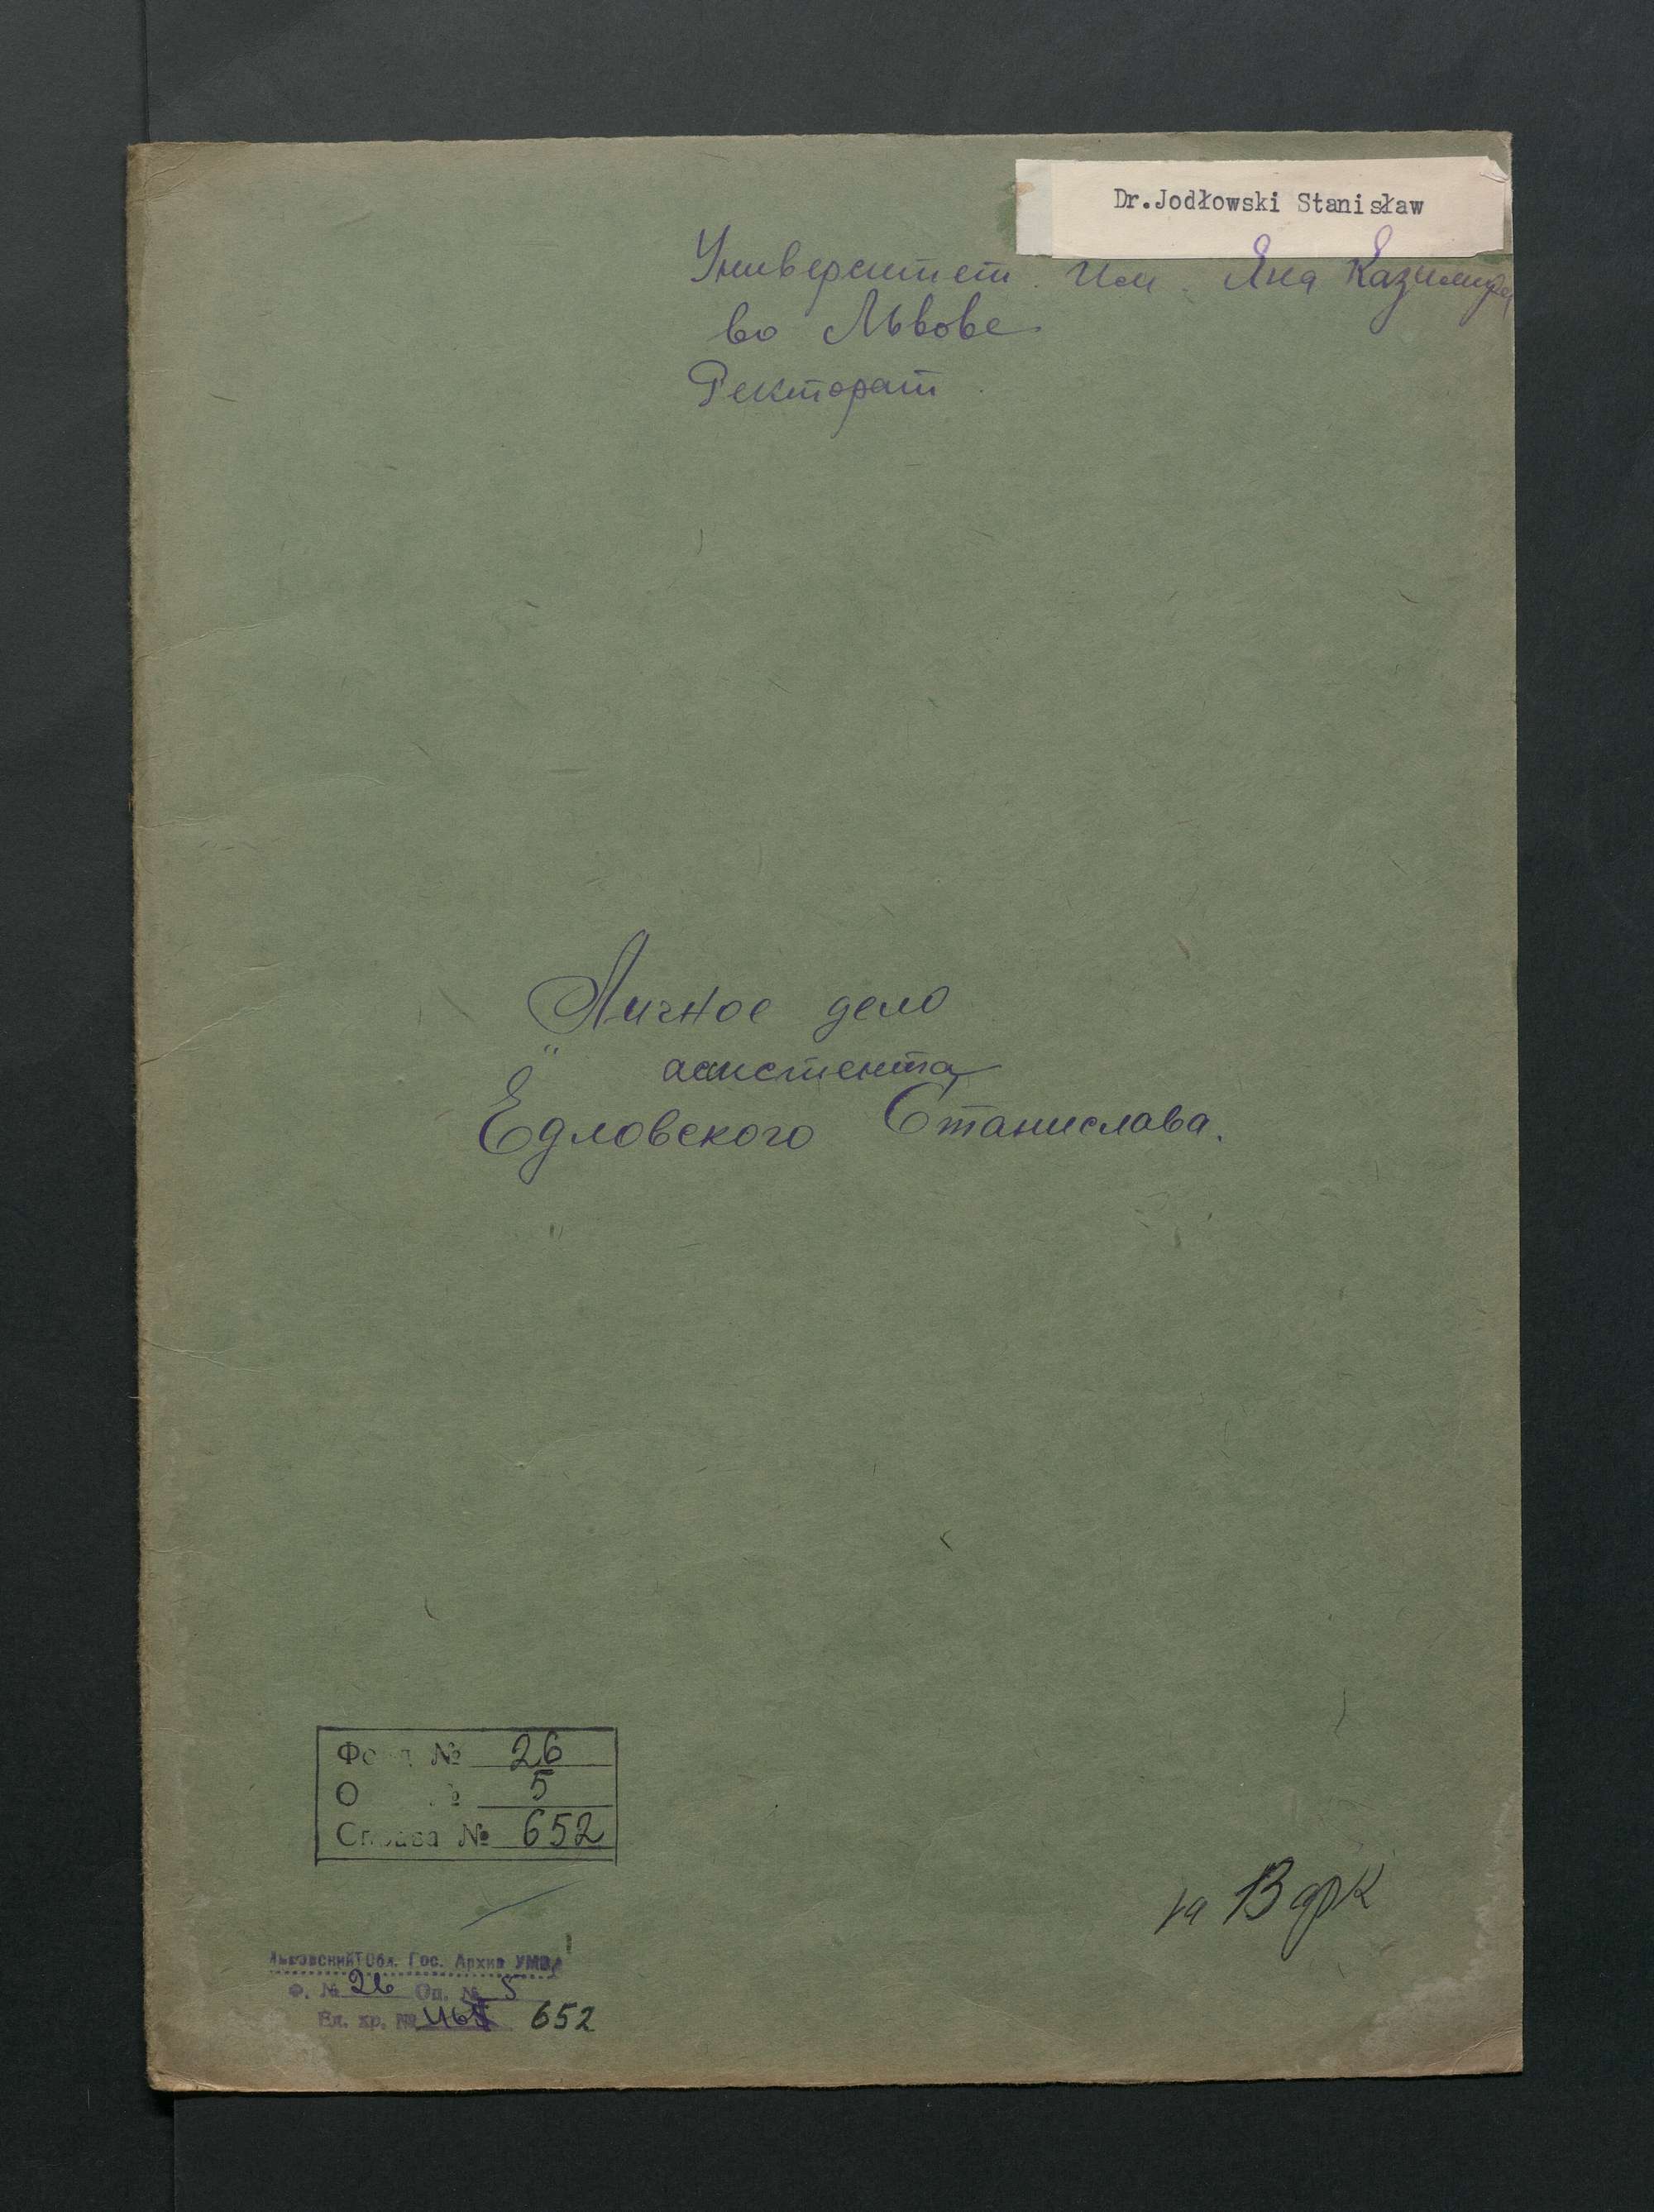 Dr.Jodłowski Stanisław
Университет им. Яна Казимира
во Львове
Ректорат.
Личное дело
ассистента
Едловского Станислава.
Фонд № 26
О № 5
Справа № 652
на 13 арк
Львовский Обл. Гос. Архив УМВД
Ф. № 26 Оп. № 5
Ед. хр. № 652